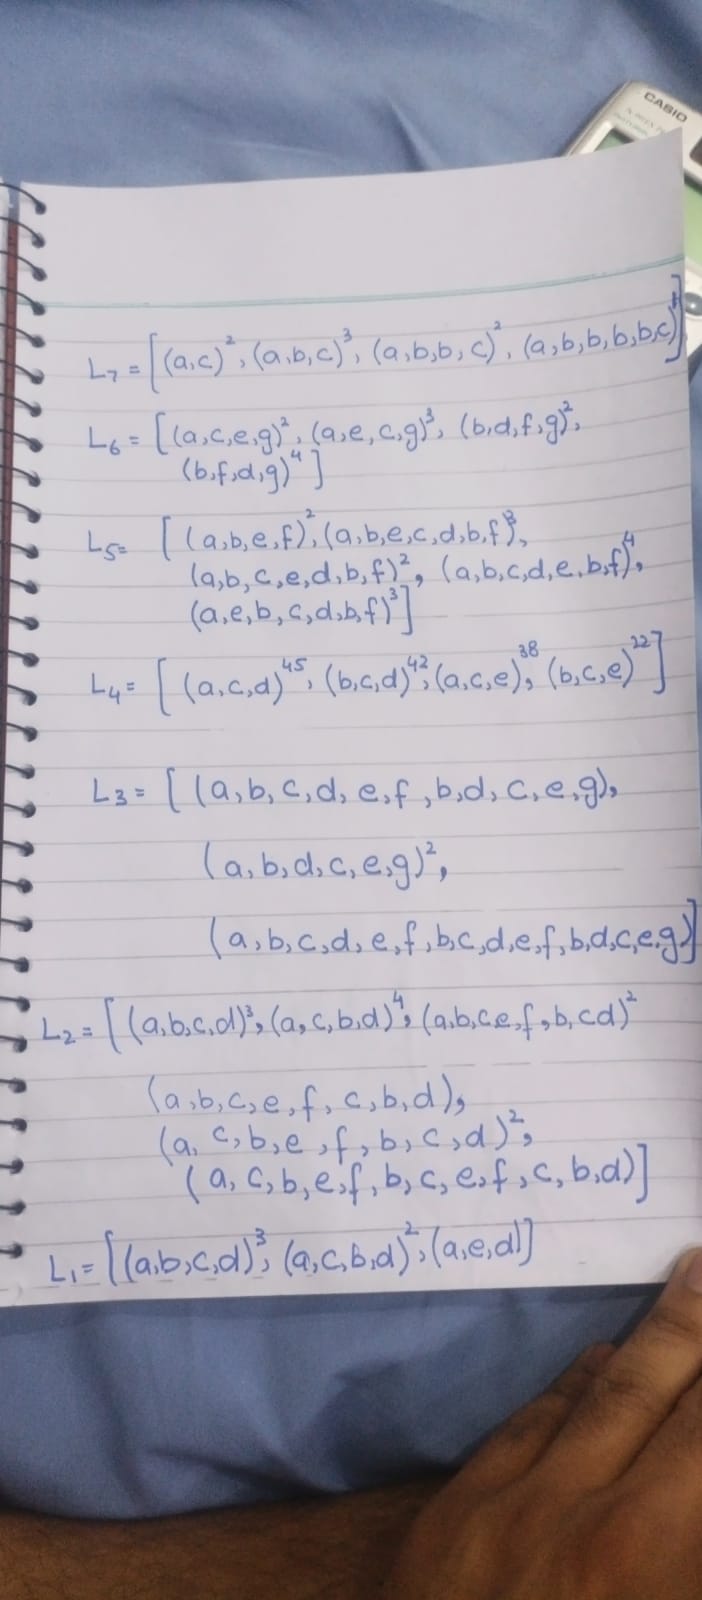 CASIO
L₇ = [(a,c)², (a,b,c)³, (a,b,b,c)², (a,b,b,b,b,c)¹]
L₆ = [(a,c,e,g)², (a,e,c,g)³, (b,d,f,g)²,
(b,f,d,g)⁴]
L₅= [(a,b,e,f)², (a,b,e,c,d,b,f)³,
(a,b,c,e,d,b,f)², (a,b,c,d,e,b,f)⁴,
(a,e,b,c,d,b,f)³]
L₄= [(a,c,d)⁴⁵, (b,c,d)⁴², (a,c,e)³⁸, (b,c,e)²²]
L₃= [(a,b,c,d,e,f,b,d,c,e,g),
(a,b,d,c,e,g)²,
(a,b,c,d,e,f,b,c,d,e,f,b,d,c,e,g)]
L₂= [(a,b,c,d)³, (a,c,b,d)⁴, (a,b,c,e,f,b,cd)²
(a,b,c,e,f,c,b,d),
(a,c,b,e,f,b,c,d)²,
(a,c,b,e,f,b,c,e,f,c,b,d)]
L₁= [(a,b,c,d)³, (a,c,b,d)², (a,e,d)]